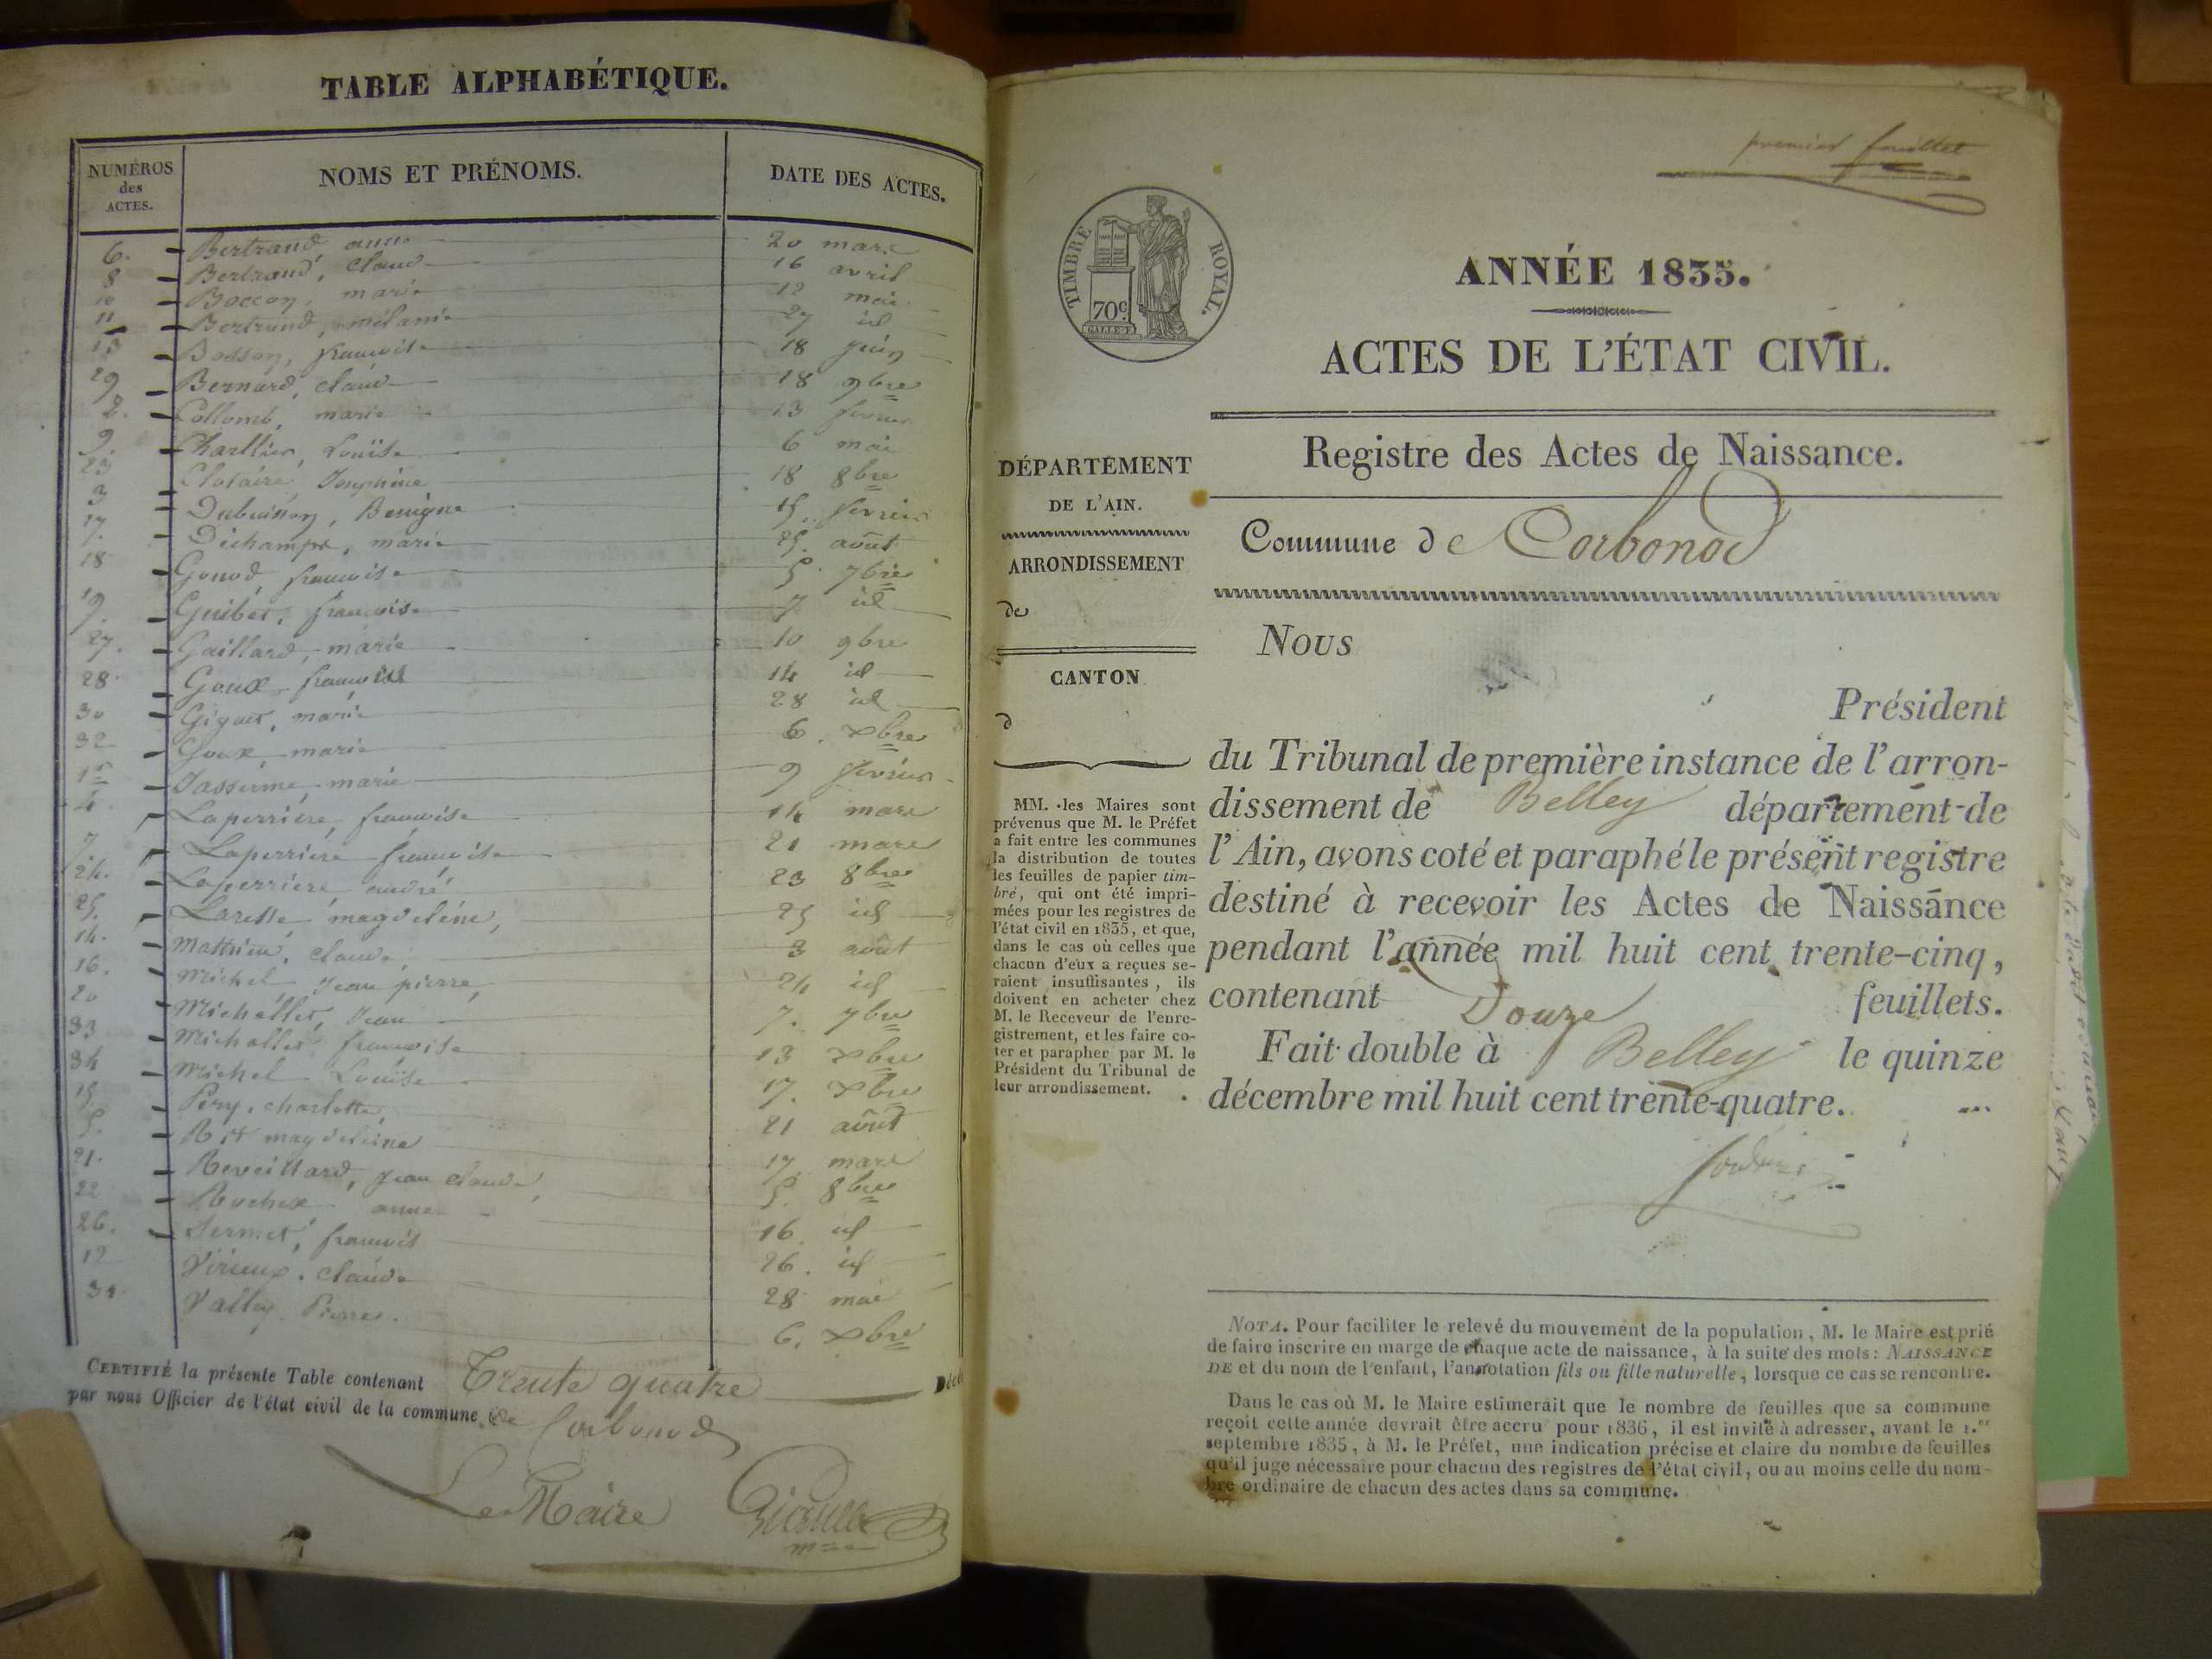 TABLE ALPHABÉTIQUE.
NUMÉROS des ACTES. NOMS ET PRÉNOMS. DATE DES ACTES.
6. Bertrand anne 20 mars
8 Bertrand, Claude 16 avril
10 Boccon, marie 12 mai
11 Bertrand, mélanie 27 id
13 Bosson, françoise 18 juin
29 Bernard, claude 18 9bre
2. Collomb, marie 13 février
9. Charllier, Louïse 6 mai
23 Clotaire Josephine 18 8bre
3 Dubuisson, Benigne 15 février
17. Dechamps, marie 25. août
18 Gonod françoise 5 7bre
19. Guibet, françoise 7 id
27. Gaillard, marie 10 9bre
28. Goux françoise 14 id
30 Giguet, marie 28 id
32 Goux marie 6. Xbre
1er marie 9 février
4. Laperrière, françoise 14 mars
7 Laperrière françoise 21 mars
24. Laperrière andré 23 8bre
25. magdeléne, 25 id
14. Mathieu, claude, 3 août
16. Michel Jean pierre, 24 id
20 Michallet, Jean 7. 7bre
33 Michallet françoise 13 Xbre
34 Michel Louïse 17. Xbre
15. Péry, charlotte, 21 août
5. magdeleine 17 mars
21. Reveillard, Jean claude, 5. 8bre
22 Rochex anne 16. id
26. Sermet, françois 26. id
12 Virieux, claude 28 mai
31. Pierre. 6. Xbre
CERTIFIÉ la présente Table contenant Trente quatre
par nous Officier de l'état civil de la commune de Corbonod
Le Maire
premier feuillet
TIMBRE ROYAL.
70c.
ANNÉE 1835.
ACTES DE L'ÉTAT CIVIL.
Registre des Actes de Naissance.
Commune de Corbonod
DÉPARTEMENT
DE L'AIN.
ARRONDISSEMENT
de
CANTON
d
MM. les Maires sont
prévenus que M. le Préfet
a fait entre les communes
la distribution de toutes
les feuilles de papier tim-
bré, qui ont été impri-
mées pour les registres de
l'état civil en 1835, et que,
dans le cas où celles que
chacun d'eux a reçues se-
raient insuffisantes, ils
doivent en acheter chez
M. le Receveur de l'enre-
gistrement, et les faire co-
ter et parapher par M. le
Président du Tribunal de
leur arrondissement.
Nous
Président
du Tribunal de première instance de l'arron-
dissement de Belley département de
l'Ain, avons coté et paraphé le présent registre
destiné à recevoir les Actes de Naissance
pendant l'année mil huit cent trente-cinq,
contenant Douze feuillets.
Fait double à Belley le quinze
décembre mil huit cent trente-quatre.
NOTA. Pour faciliter le relevé du mouvement de la population, M. le Maire est prié
de faire inscrire en marge de chaque acte de naissance, à la suite des mots: NAISSANCE
DE et du nom de l'enfant, l'annotation fils ou fille naturelle, lorsque ce cas se rencontre.
Dans le cas où M. le Maire estimerait que le nombre de feuilles que sa commune
reçoit cette année devrait être accru pour 1836, il est invité à adresser, avant le 1.er
septembre 1835, à M. le Préfet, une indication précise et claire du nombre de feuilles
qu'il juge nécessaire pour chacun des registres de l'état civil, ou au moins celle du nom-
bre ordinaire de chacun des actes dans sa commune.